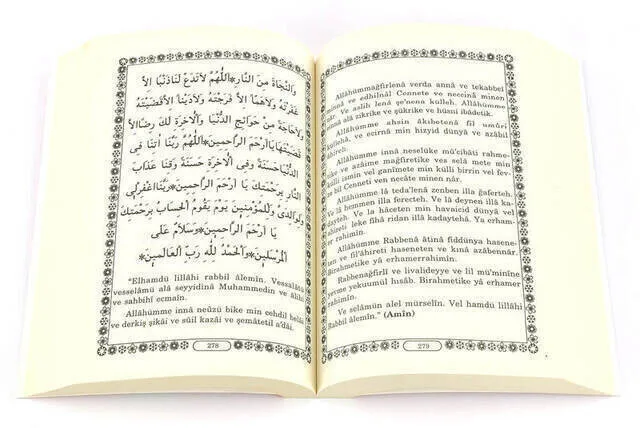 وَالنَّجَاةَ مِنَ النَّارِ٭اَللّٰهُمَّ لَاتَدَعْ لَنَاذَنْبًا اِلَّا
غَفَرْتَهُ وَلَاهَمًّا اِلَّا فَرَّجْتَهُ وَلَادَيْنًا اِلَّاقَضَيْتَهُ
وَلَاحَاجَةً مِنْ حَوَائِجِ الدُّنْيَا وَالْاٰخِرَةِ لَكَ رِضًااِلَّا
قَضَيْتَهَايَااَرْحَمَ الرَّاحِمِينَ٭اَللّٰهُمَّ رَبَّنَا اٰتِنَا فِى
الدُّنْيَاحَسَنَةً وَفِى الْاٰخِرَةِ حَسَنَةً وَقِنَا عَذَابَ
النَّارِ بِرَحْمَتِكَ يَا اَرْحَمَ الرَّاحِمِينَ٭رَبَّنَااغْفِرْلِى
وَلِوَالِدَىَّ وَلِلْمُؤْمِنِينَ يَوْمَ يَقُومُ الْحِسَابُ بِرَحْمَتِكَ
يَا اَرْحَمَ الرَّاحِمِينَ٭وَسَلَامٌ عَلَى
الْمُرْسَلِينَ٭وَالْحَمْدُ لِلّٰهِ رَبِّ الْعَالَمِينَ٭
"Elhamdü lillâhi rabbil âlemîn. Vessalâtü
vesselâmü alâ seyyidinâ Muhammedin ve âlihi
ve sahbihî ecmaîn.
Allâhümme innâ neûzü bike min cehdil belâi
ve derkiş şikâi ve sûil kazâi ve şemâtetil a'dâi.
278
Allâhümmağfirlenâ verda annâ ve tekabbel
minnâ ve edhilnâl Cennete ve neccinâ minen
nâr. Ve aslih lenâ şe'nenâ kulleh. Allâhümme
einnâ alâ zikrike ve şükrike ve hüsni ibâdetik.
Allâhümme ahsin âkıbetenâ fil umûri
küllehâ, ve ecirnâ min hizyid dünyâ ve azâbil
âhireh.
Allâhümme innâ neselüke mü'cibâti rahme-
tike ve azâime mağfiretike ves selâ mete min
külli ismin vel ganîmete min külli birrin vel fev-
ze bil Cenneti ven necâte minen nâr.
Allâhümme lâ teda'lenâ zenben illa ğaferteh.
Ve lâ hemmen illa ferecteh. Ve lâ deynen illâ ka-
dayteh. Ve la hâceten min havaicid dünyâ vel
âhireti leke fîhâ ridan illâ kadayteha. Ya erha-
mer rahimîn.
Allâhümme Rabbenâ âtinâ fiddünya hasene-
ten ve fil'âhireti haseneten ve kınâ azâbennâr.
Birahmetike yâ erhamerrahimîn.
Rabbenâğfirlî ve livalideyye ve lil mü'minîne
yevme yekuumül hısâb. Birahmetike yâ erhamer
rahimîn.
Ve selâmün alel mürselîn. Vel hamdü lillâhi
Rabbil âlemîn." (Amîn)
279